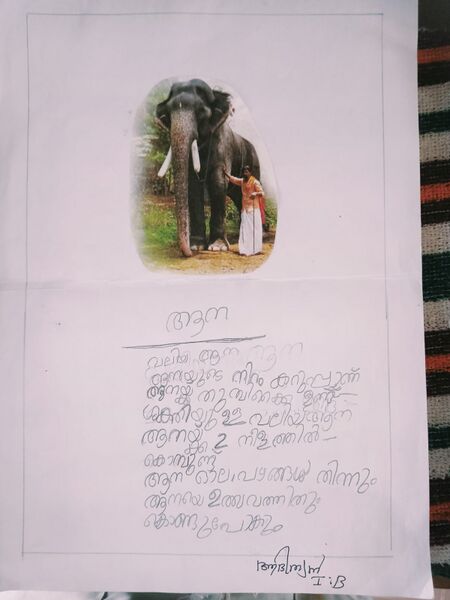 ആന
വലിയ ആന ആന
ആനയുടെ നിറം കറുപ്പാണ്
ആനയ്ക്ക് തുമ്പിക്കൈ ഉണ്ട്
ശക്തിയുള്ള വലിയ ആന
ആനയ്ക്ക് 2 നീളത്തിൽ
കൊമ്പുണ്ട്
ആന ഓല, പഴങ്ങൾ തിന്നും
ആനയെ ഉത്സവത്തിനും
കൊണ്ടുപോകും
I:B